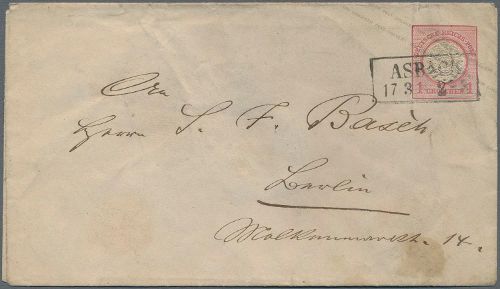 DEUTSCHE REICHS-POST
ASBACH
17 3
1 GROSCHEN 1
An
Herrn S. F. Basch
Berlin
Molkenmarkt. 14.